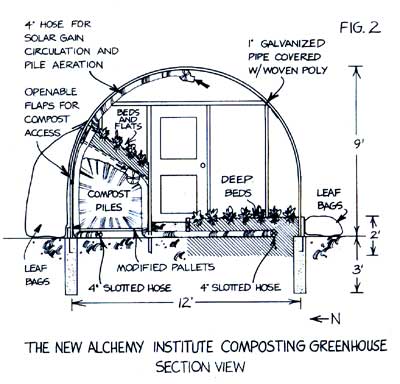 4" HOSE FOR
SOLAR GAIN
CIRCULATION AND
PILE AERATION
FIG. 2
1" GALVANIZED
PIPE COVERED
W/WOVEN POLY
OPENABLE
FLAPS FOR
COMPOST
ACCESS
BEDS
AND
FLATS
9'
COMPOST
PILES
DEEP
BEDS
LEAF
BAGS
2'
LEAF
BAGS
MODIFIED PALLETS
3'
4" SLOTTED HOSE
4" SLOTTED HOSE
12'
N
THE NEW ALCHEMY INSTITUTE COMPOSTING GREENHOUSE
SECTION VIEW